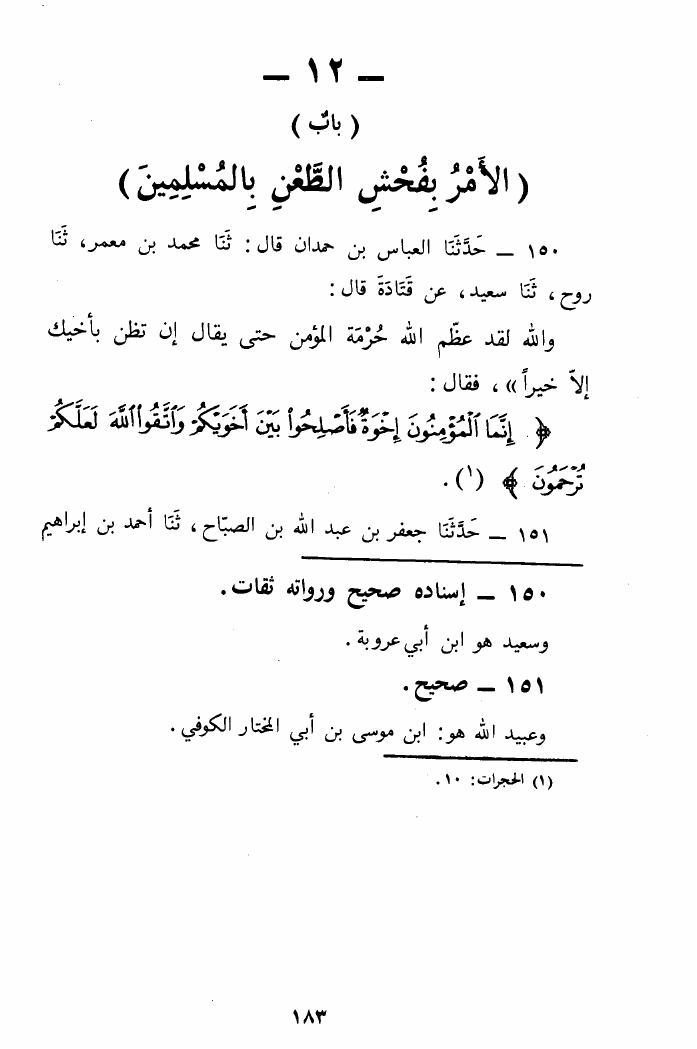 — ١٢ —
( بابٌ )
( الأَمْرُ بِفُحْشِ الطَّعْنِ بِالمُسْلِمِينَ )
١٥٠ — حَدَّثَنَا العباس بن حمدان قال : ثَنَا محمد بن معمر، ثَنَا
روح ، ثَنَا سعيد، عن قَتَادَةَ قال :
والله لقد عظّم الله حُرْمَة المؤمن حتى يقال إن تظن بأخيك
إلاّ خيراً » ، فقال :
﴿ إِنَّمَا ٱلْمُؤْمِنُونَ إِخْوَةٌ فَأَصْلِحُوا۟ بَيْنَ أَخَوَيْكُمْ وَٱتَّقُوا۟ ٱللَّهَ لَعَلَّكُمْ
تُرْحَمُونَ ﴾ (١) .
١٥١ — حَدَّثَنَا جعفر بن عبد الله بن الصبّاح ، ثَنَا أحمد بن إبراهيم
١٥٠ — إسناده صحيح ورواته ثقات .
وسعيد هو ابن أبي عروبة .
١٥١ — صحيح .
وعبيد الله هو : ابن موسى بن أبي المختار الكوفي .
(١) الحجرات : ١٠ .
١٨٣